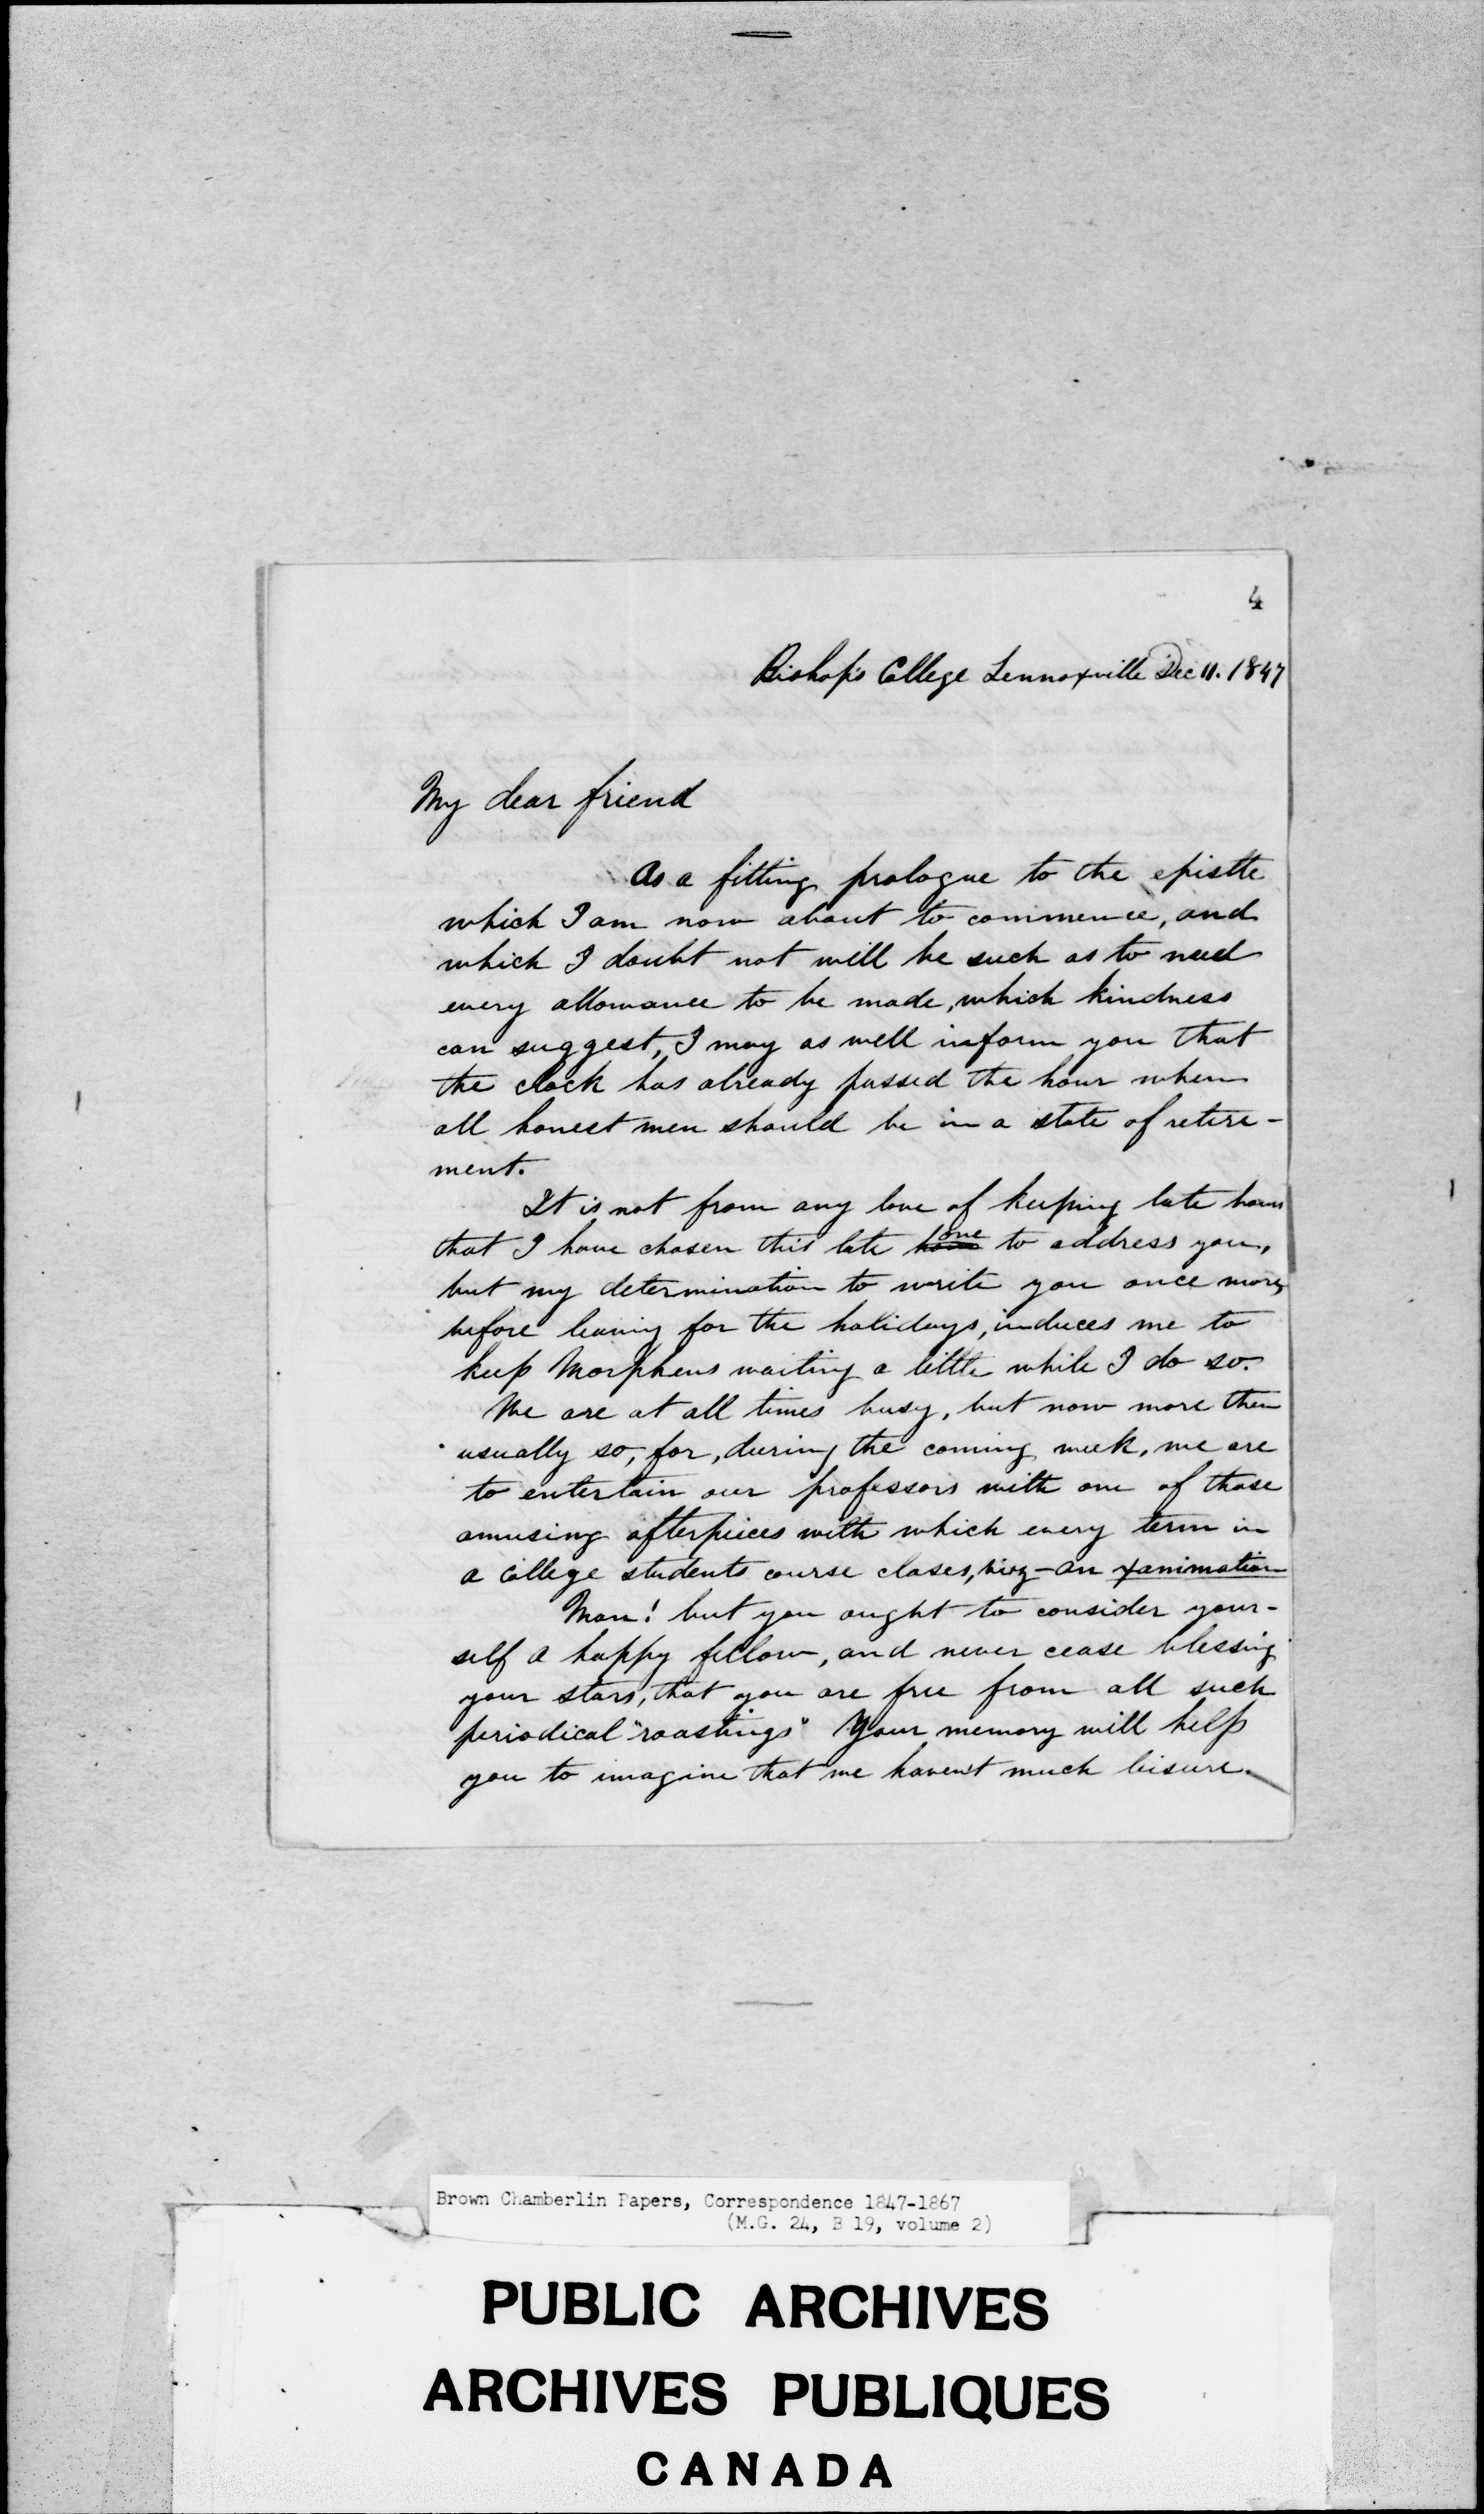 4
Bishop's College Lennoxville Dec 11. 1847
My dear friend
As a fitting prologue to the epistle
which I am now about to commence, and
which I doubt not will be such as to need
every allowance to be made, which kindness
can suggest, I may as well inform you that
the clock has already passed the hour when
all honest men should be in a state of retire-
ment.
It is not from any love of keeping late hours
that I have chosen this late one to address you,
but my determination to write you once more,
before leaving for the holidays, induces me to
keep Morpheus waiting a little while I do so.
We are at all times busy, but now more then
usually so, for, during the coming week, we are
to entertain our professors with one of those
amusing afterpieces with which every term in
a College students course closes, viz - an xamination
Man! but you ought to consider your-
self a happy fellow, and never cease blessing
your stars, that you are free from all such
periodical "roastings" Your memory will help
you to imagine that we haven't much leisure.
Brown Chamberlin Papers, Correspondence 1847-1867
(M.G. 24, B 19, volume 2)
PUBLIC ARCHIVES
ARCHIVES PUBLIQUES
CANADA